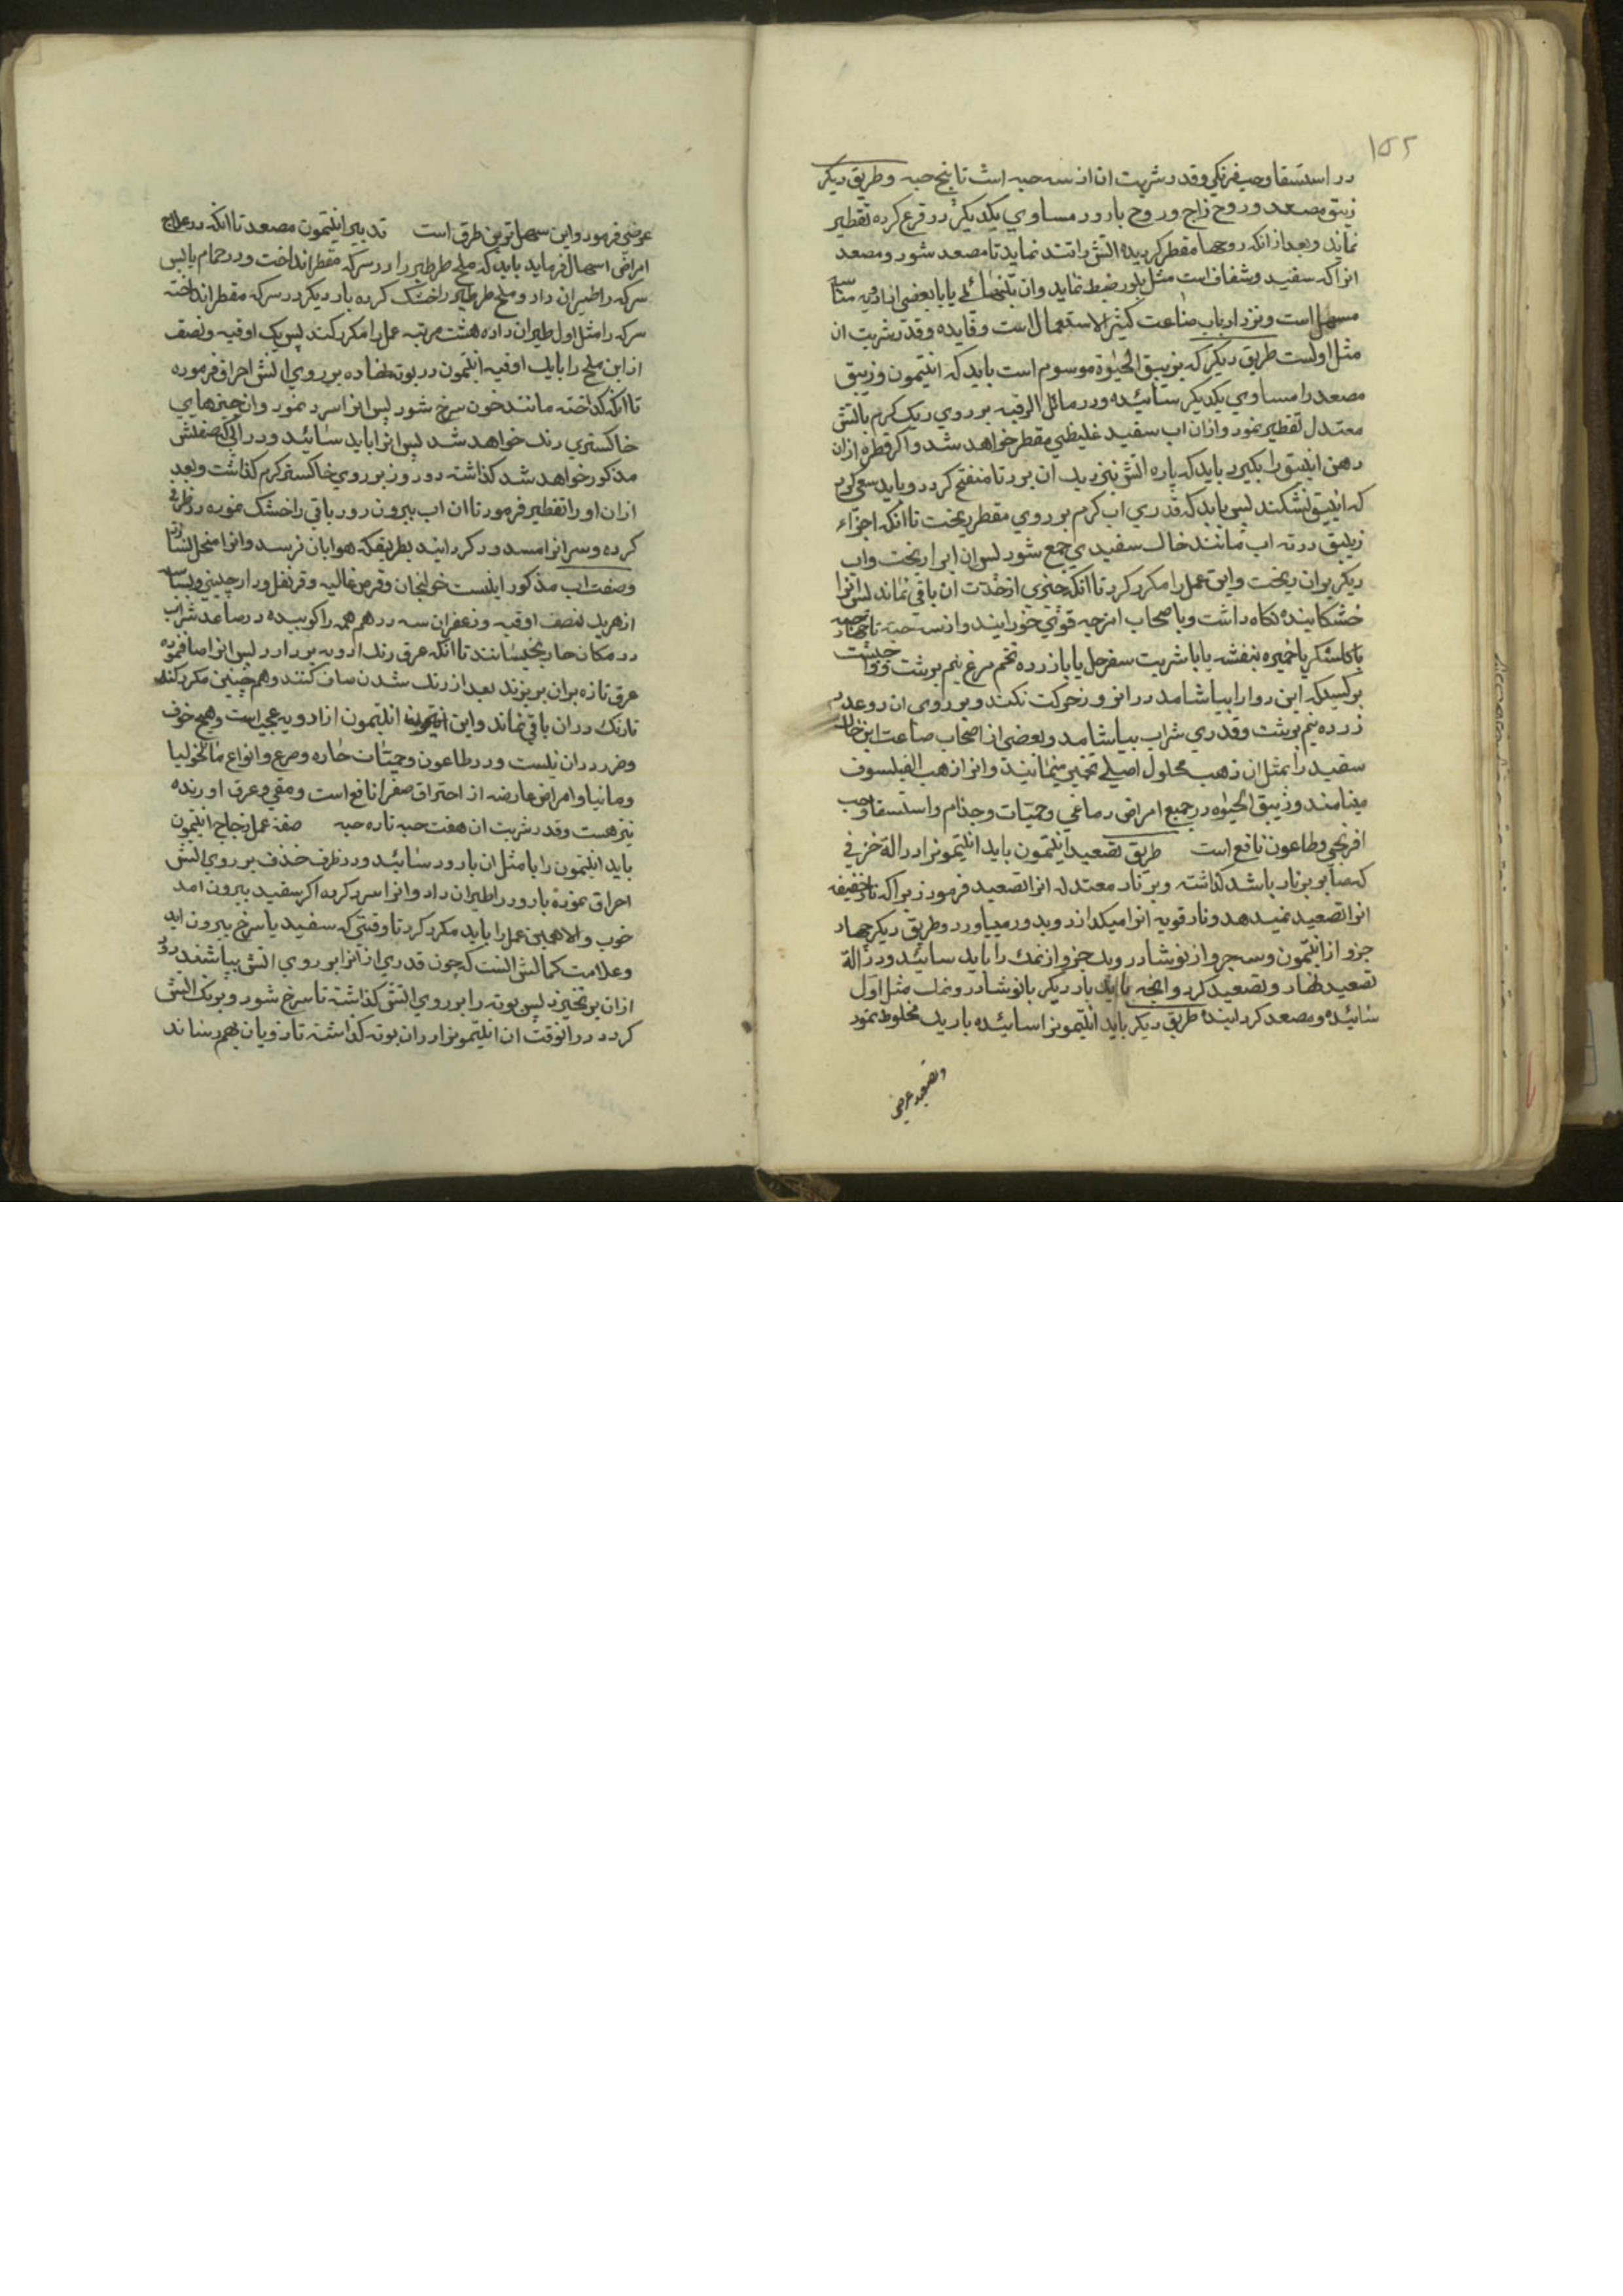 ۱۵۲
در استسقا و حب فرنکی و قدر شربت ان از سه حبه است تا پنج حبه و طریق دیکر
زیبق مصعد و روح زاج و روح بارود مساوی یکدیکر در قرع کرده تقطیر
نماید و بعد از انکه روحها مقطر کردیده اتش را تند نماید تا مصعد شود و مصعد
انرا که سفید و شفاف است مثل بلور ضبط نماید و ان بتنهائی یا با بعضی از ادویه مناسبه
مسهل است و نزد ارباب صناعت کثیر الاستعمال است و فایده و قدر شربت ان
مثل اولست طریق دیکر که بزیبق الحیوة موسوم است باید که انتیمون و زیبق
مصعد را مساوی یکدیکر سائیده و در مائل الرقبه بر روی ریک کرم باتش
معتدل تقطیر نمود و ازان اب سفید غلیظی مقطر خواهد شد و اکر قطره ازان
دهن انبیق را بکیرد باید که پاره اتش نزدیک ان برد تا منفتح کردد و باید سعی کرد
که انبیق نشکند پس باید که قدری اب کرم بر روی مقطر ریخت تا انکه اجزاء
زیبق در ته اب مانند خاک سفیدی جمع شود پس ان اب را ریخت و اب
دیکر بران ریخت و این عمل را مکرر کرد تا انکه چیزی از حدت ان باقی نماند پس انرا
خشکانیده نکاه داشت و باصحاب امزجه قوئی خورانید و از سه حبه تا چهار حبه
با کلشکر یا خمیره بنفشه یا با شربت سفرجل یا با زرده تخم مرغ نیم برشت و واجبست
بر کسیکه این دوا را بیاشامد در انروز حرکت نکند و بر روی ان دو عدد
زرده نیم برشت و قدری شراب بیاشامد و بعضی از اصحاب صناعت این خاک
سفید را بمثل ان ذهب محلول اصیلی تخمیر مینمانیند و انرا ذهب الفیلسوف
مینامند و زیبق الحیوه در جمیع امراض دماغی و حمیّات و جذام و استسقا و حب
افرنجی و طاعون نافع است طریق تصعید انتیمون باید انتیمونرا در الة خزفی
که صابر بر نار باشد کذاشته و بر نار معتدله انرا تصعید فرمود زیرا که نار خفیفه
انرا تصعید نمیدهد و نار قویه انرا میکدازد و بد ور میاورد و طریق دیکر چهار
جزو از انتیمون و سه جزو از نوشادر و یک جزو از نمک را باید سائید و در الة
تصعید نهاد و تصعید کرد و انچه باید بار دیکر با نوشادر و نمک مثل اول
سائیده و مصعد کردانیده طریق دیکر باید انتیمونرا سائیده با ریک مخلوط نمود
و تصعید عرضی
عرضی فرمود و این سهل ترین طرق است تدبیر انتیمون مصعد تا انکه در علاج
امراض اسهال فرماید باید که ملح طرطیر را در سرکه مقطر انداخت و در حمام یابس
سرکه را طیران داد و ملح طرطیر را خشک کرده بار دیکر در سرکه مقطر انداخته
سرکه را مثل اول طیران داده هشت مرتبه عمل را مکرر کند پس یک اوقیه و نصف
از این ملح را با یک اوقیه انتیمون در بوته نهاده بر روی اتش احراق فرموده
تا انکه کداخته مانند خون سرخ شود پس انرا سرد نمود و ان چیزهای
خاکستری رنک خواهد شد پس انرا باید سائید و در ابی که صفتش
مذکور خواهد شد کذاشته دو روز بر روی خاکستر کرم کذاشت و بعد
ازان او را تقطیر فرمود تا ان اب بیرون رود باقی را خشک نموده در ظرفی
کرده و سر انرا مسدود کردانید بطریقیکه هوا بان نرسد و انرا منحل نسازد
و صفت اب مذکور اینست خولنجان و قرص غالیه و قرنفل و دارچینی و بسباسه
از هریک نصف اوقیه و زعفران سه درهم همه را کوبیده در صاعد شراب
در مکان حار بخیسانند تا انکه عرق رنک ادویه بردارد پس انرا صاف نموده
عرق تازه بران بریزند بعد از رنک شدن صاف کنند و همچنین مکرر کنند
تا رنک دران باقی نماند و این انتیمون از ادویه عجیب است و هیچ خوف
و ضرر دران نیست و در طاعون و حمیّات حاره و صرع و انواع مالخولیا
و مانیا و امراض عارضه از احتراق صفرا نافع است و مقی و عرق اورنده
نیز هست و قدر شربت ان هفت حبه تا ده حبه صفة عمل زجاج انتیمون
باید انتیمون را با مثل ان بارود سائید و در ظرف خذف بر روی اتش
احراق نموده بارود را طیران داد و انرا سرد کرده اکر سفید بیرون امد
خوب و الا همین عمل را باید مکرر کرد تا وقتی که سفید یا سرخ بیرون اید
و علامت کمالش انست که چون قدری از انرا بر روی اتش بپاشند دود
ازان برنخیزد پس بوته را بر روی اتش کذاشته تا سرخ شود و برنک اتش
کردد در انوقت ان انتیمونرا دران بوته کذاشته تا ذوبان بهم رساند